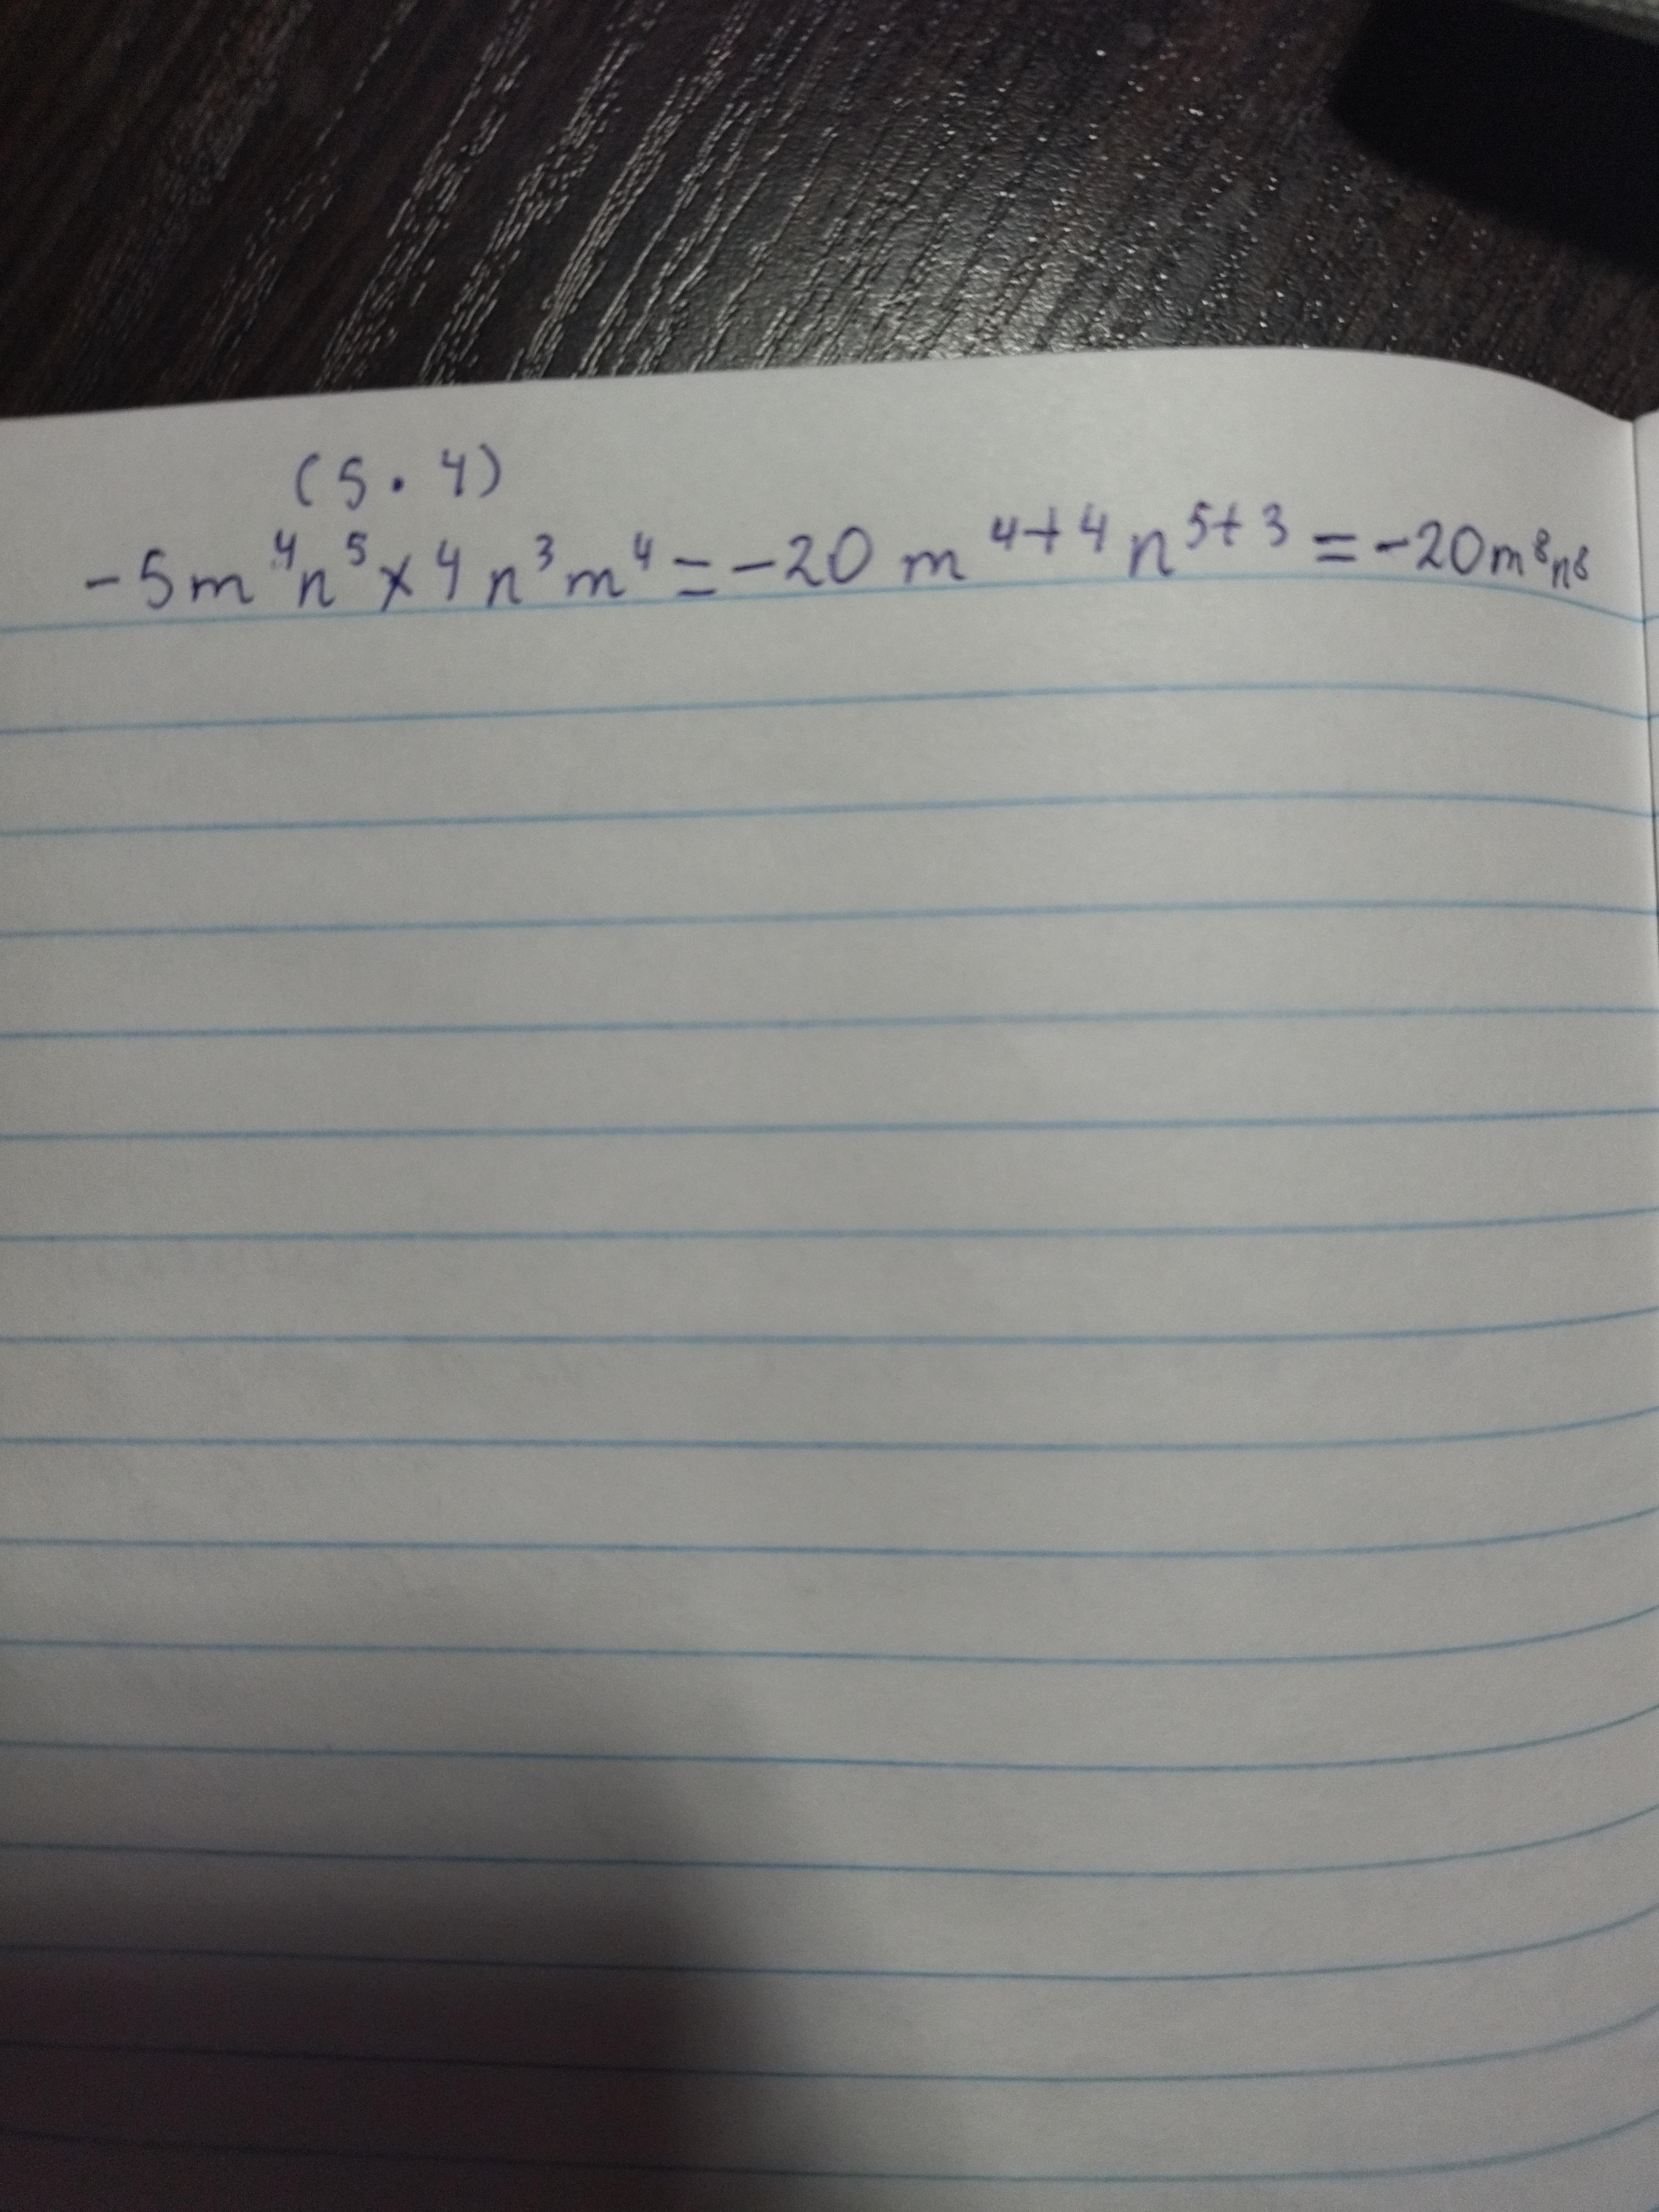 (5 · 4)
-5m⁴n⁵ × 4n³m⁴ = -20 m⁴⁺⁴ n⁵⁺³ = -20m⁸n⁸